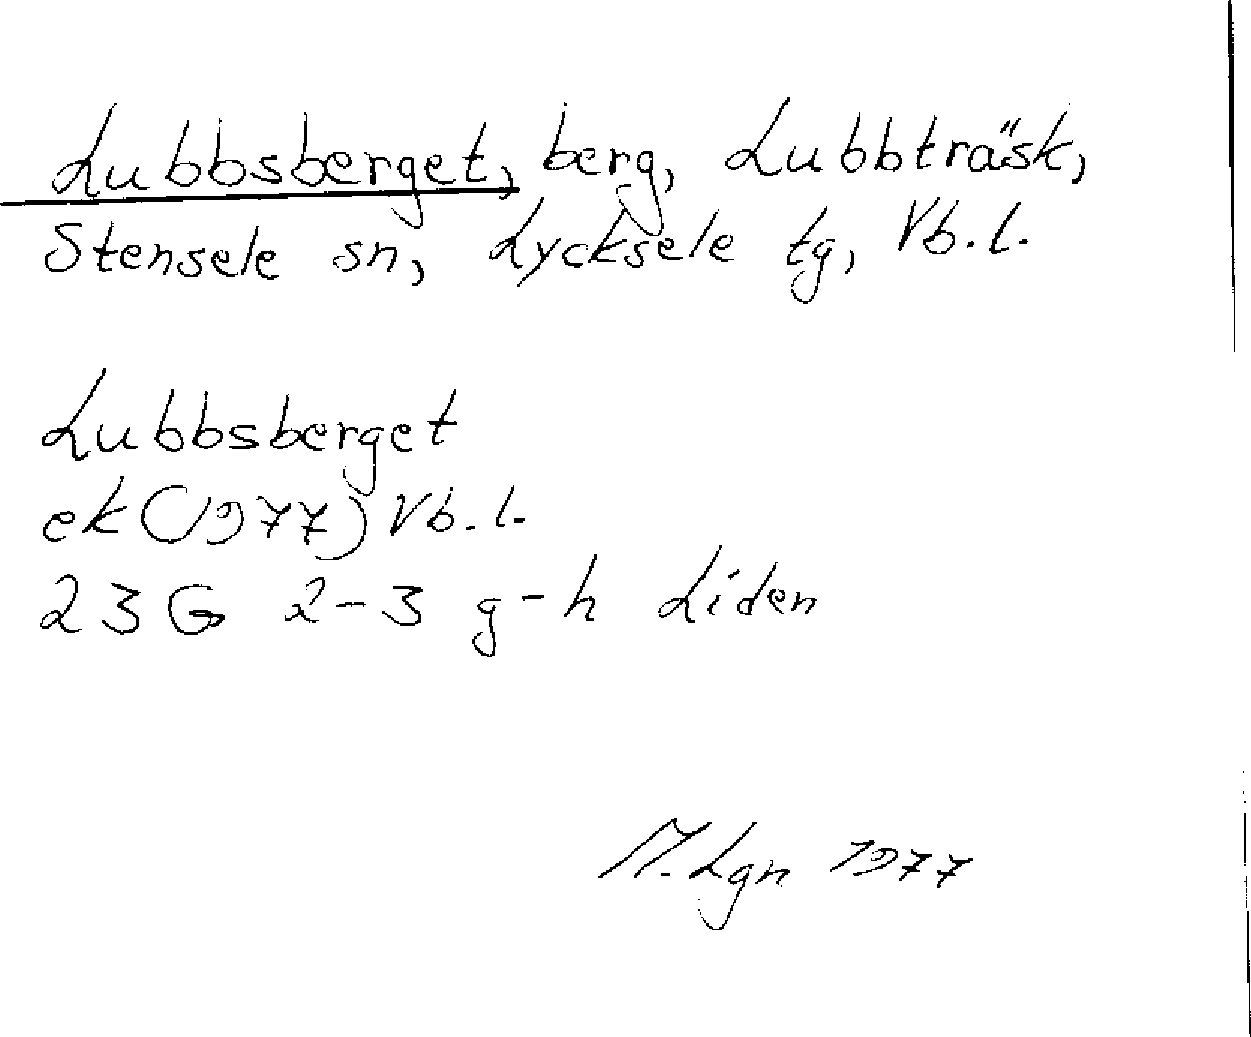 Lubbsberget, berg, Lubbträsk,
Stensele sn, Lycksele tg, Vb.l.
Lubbsberget
ek (1977) Vb.l.
23 G 2-3 g-h Liden
M. Lgn 1977